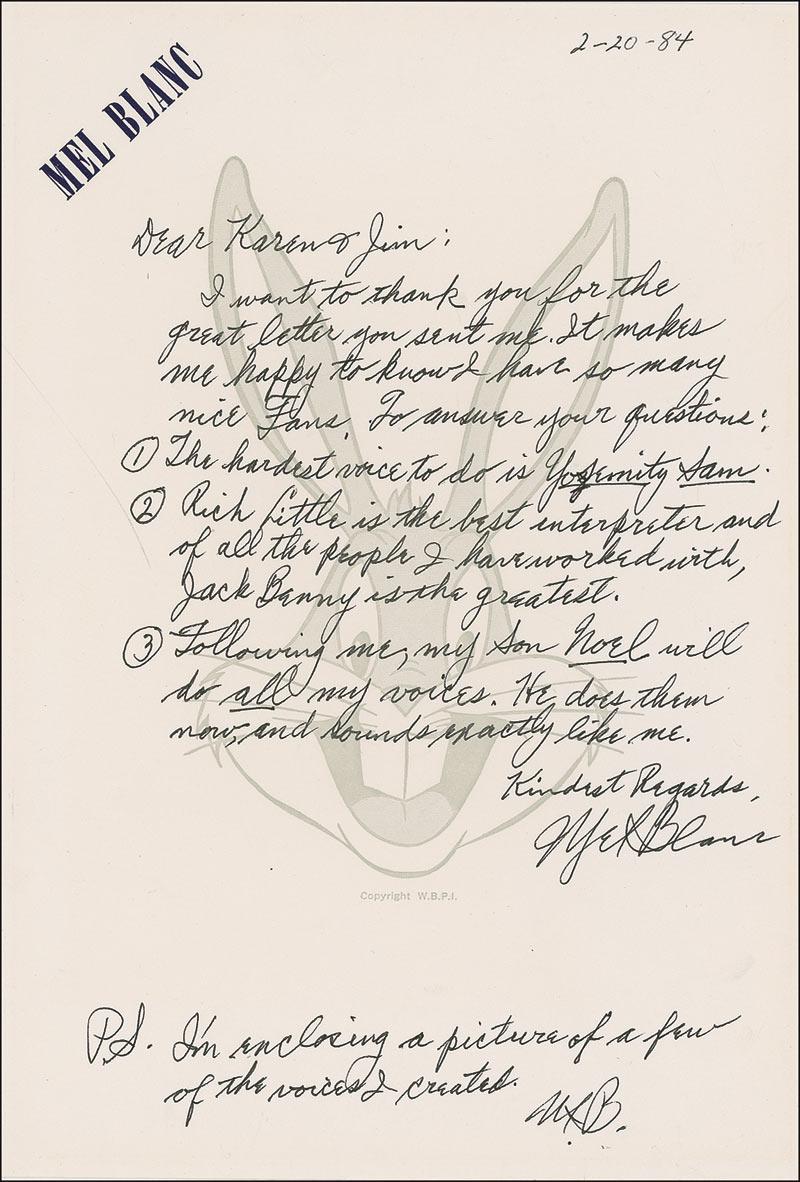 2-20-84
MEL BLANC
Dear Karen & Jim:
I want to thank you for the
great letter you sent me. It makes
me happy to know I have so many
nice Fans. To answer your questions:
① The hardest voice to do is Yosemity Sam.
② Rich Little is the best interpreter and
of all the people I have worked with,
Jack Benny is the greatest.
③ Following me, my Son Noel will
do all my voices. He does them
now, and sounds exactly like me.
Kindest Regards,
Mel Blanc
Copyright W.B.P.I.
P.S. I'm enclosing a picture of a few
of the voices I created.
M.B.